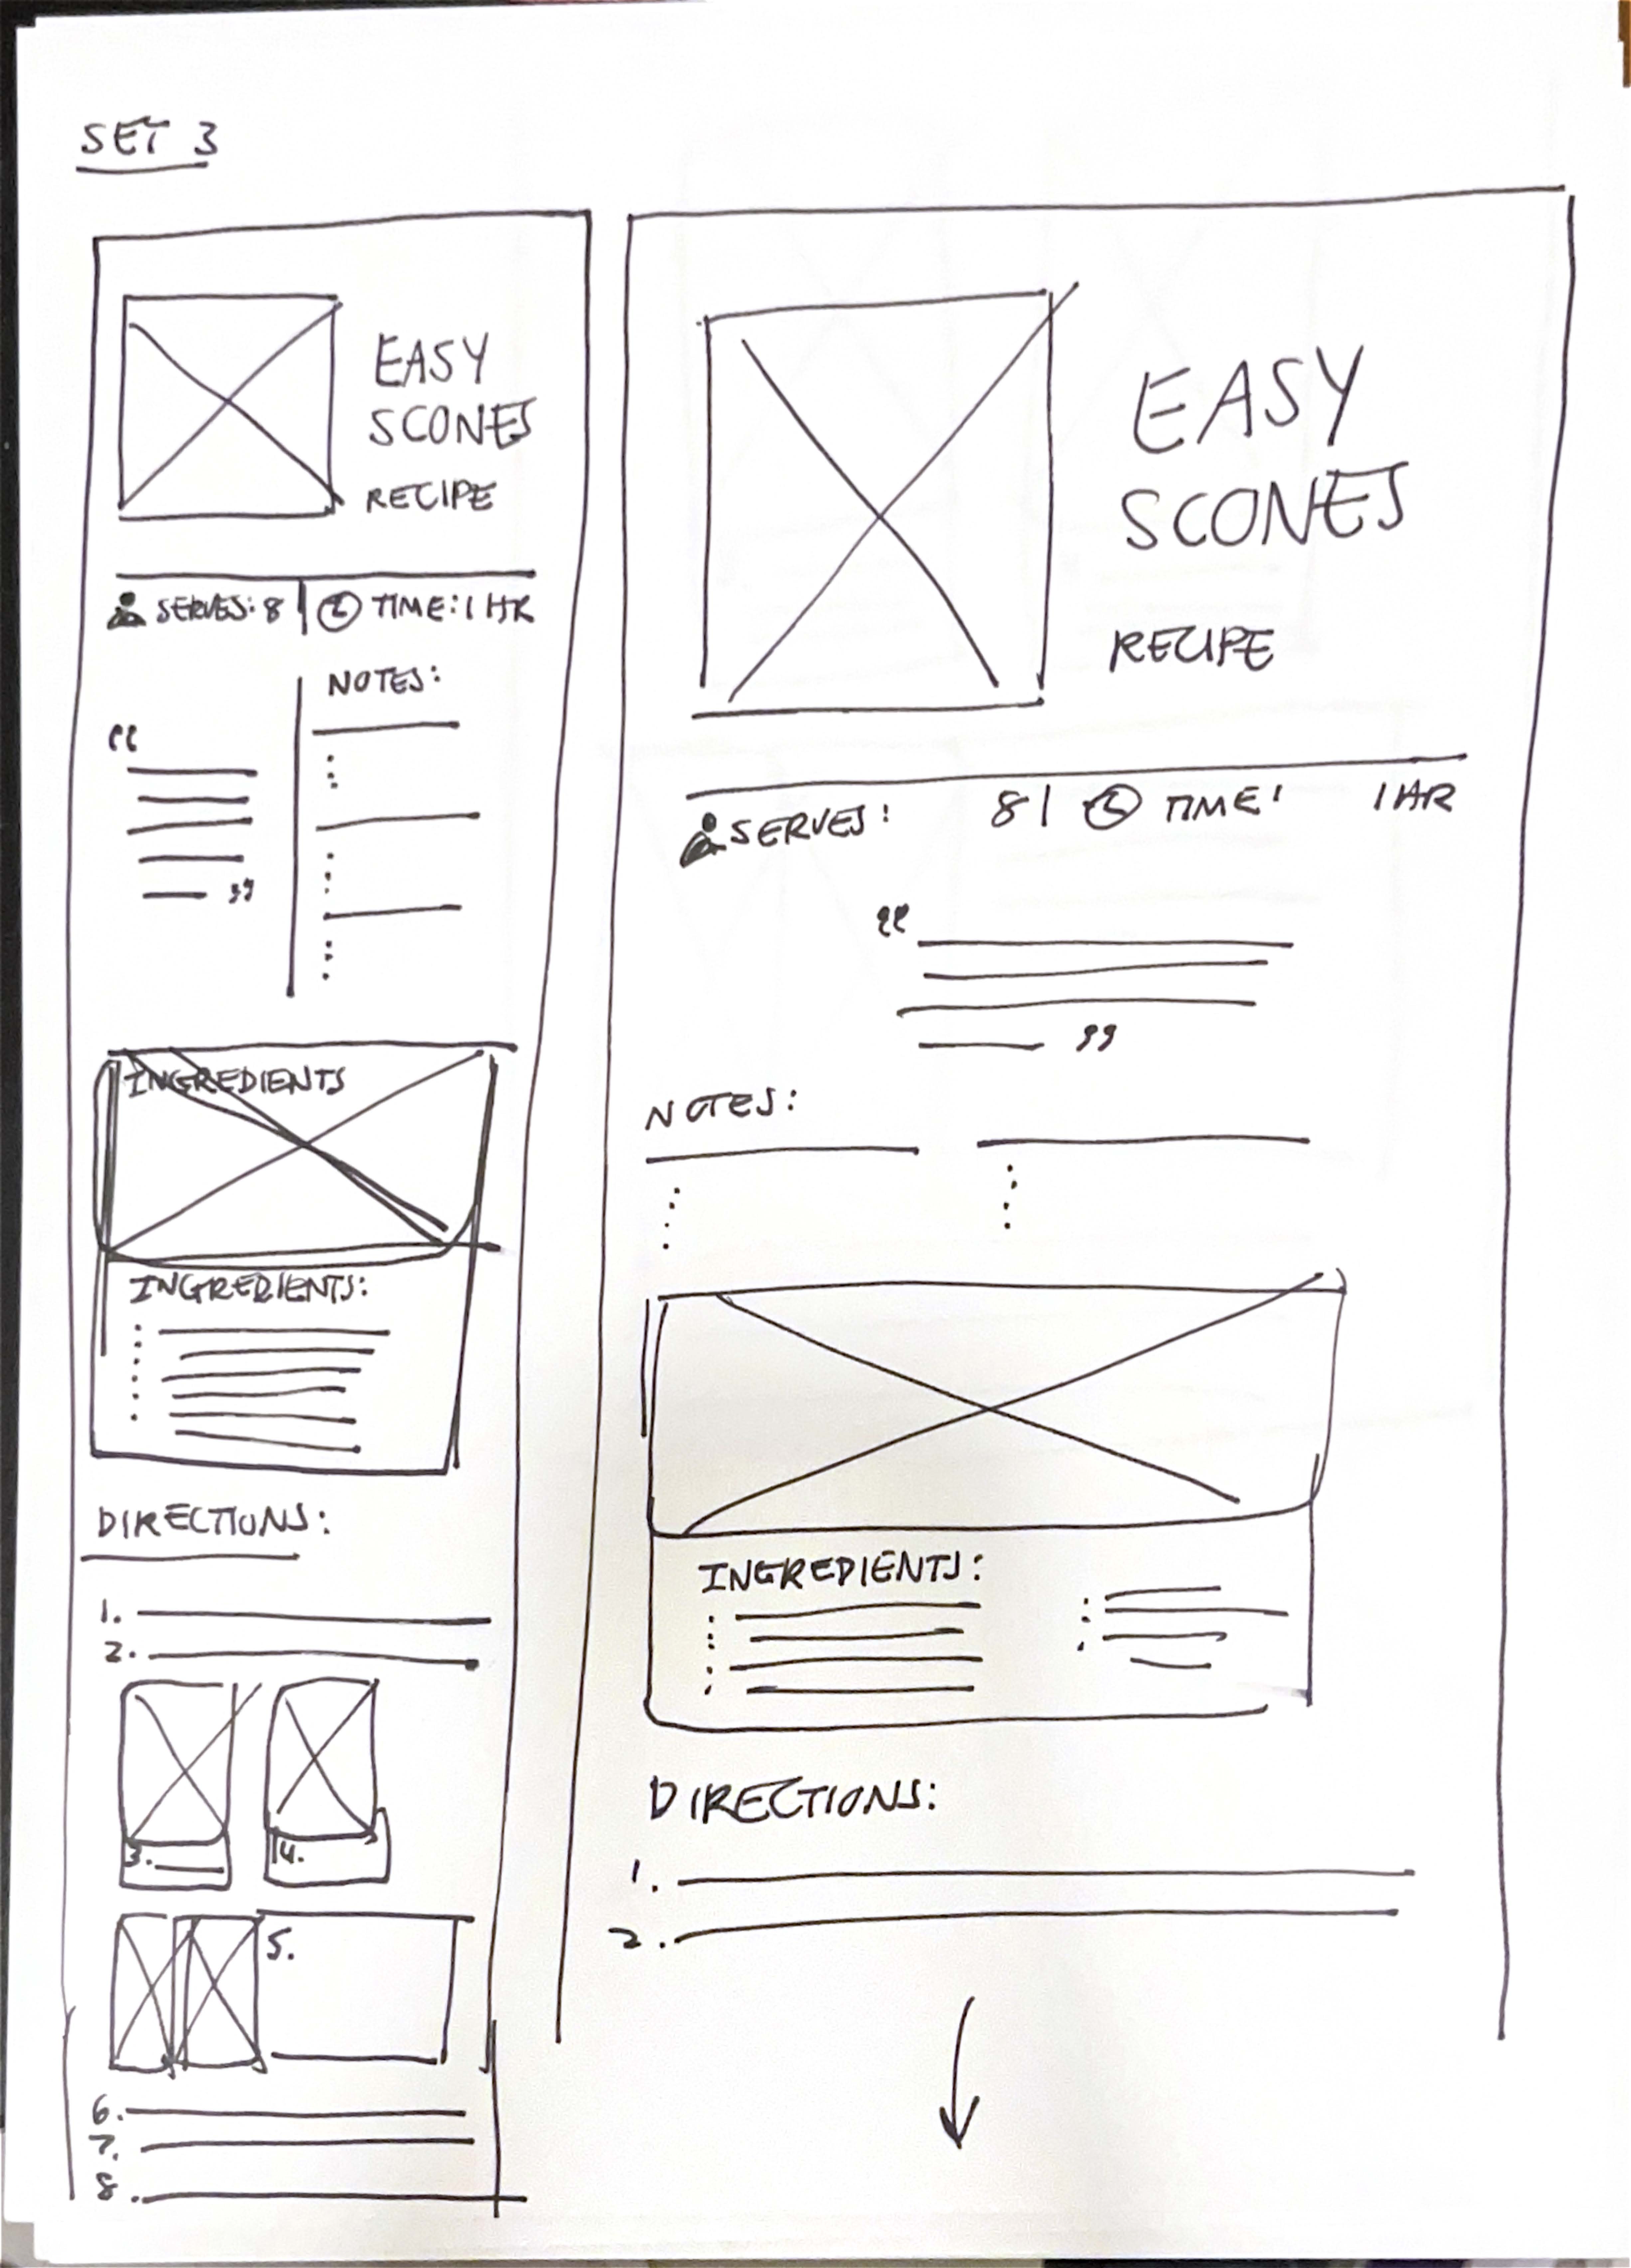 SET 3
EASY
SCONES
RECIPE
SERVES: 8 | TIME: 1 HR
NOTES:
“
”
INGREDIENTS
INGREDIENTS:
DIRECTIONS:
1.
2.
3.
4.
5.
6.
7.
8.
EASY
SCONES
RECIPE
SERVES: 8 | TIME: 1 HR
“
”
NOTES:
INGREDIENTS:
DIRECTIONS:
1.
2.